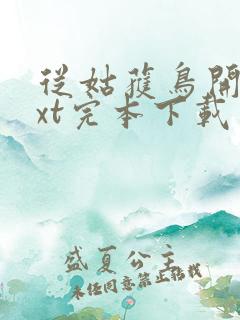 從姑蘿鳥開
xt完本下載
盛夏公主
未經同意禁止轉載